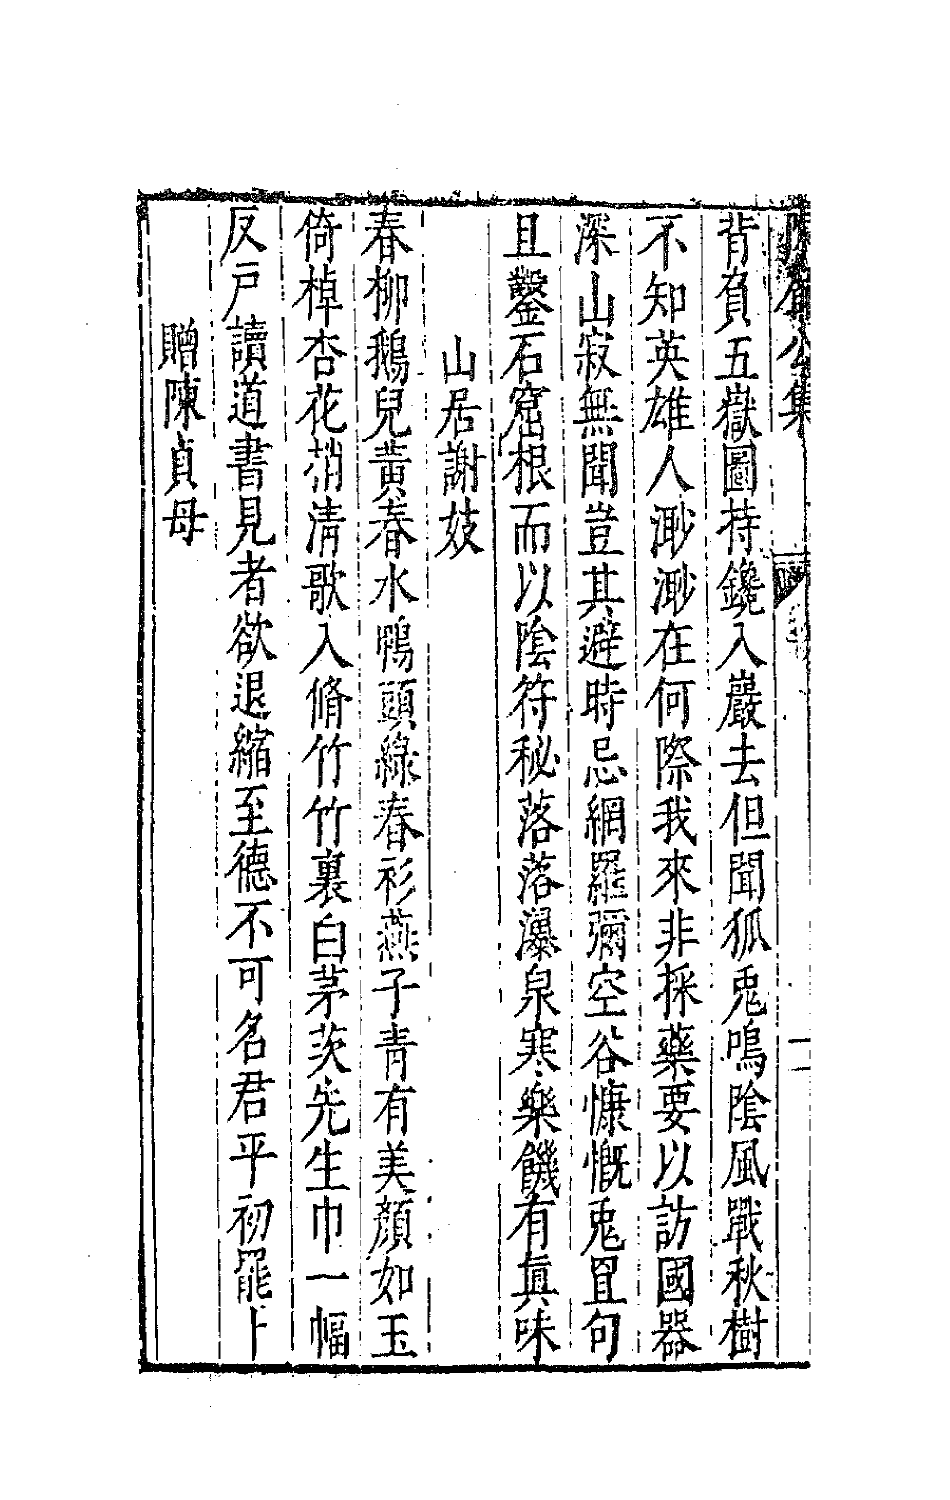 公集
背負五嶽圖持鑱入巖去但聞狐兎鳴陰風戰秋樹
不知英雄人渺渺在何際我來非採藥要以訪國器
深山寂無聞豈其避時忌網羅彌空谷慷慨兎罝句
且鑿石窟根而以陰符秘落落瀑泉寒樂饑有真味
山居謝妓
春柳鵝兒黃春水鴨頭綠春衫燕子青有美顏如玉
倚棹杏花梢清歌入脩竹竹裏白茅茨先生巾一幅
反戶讀道書見者欲退縮至德不可名君平初罷卜
贈陳貞母